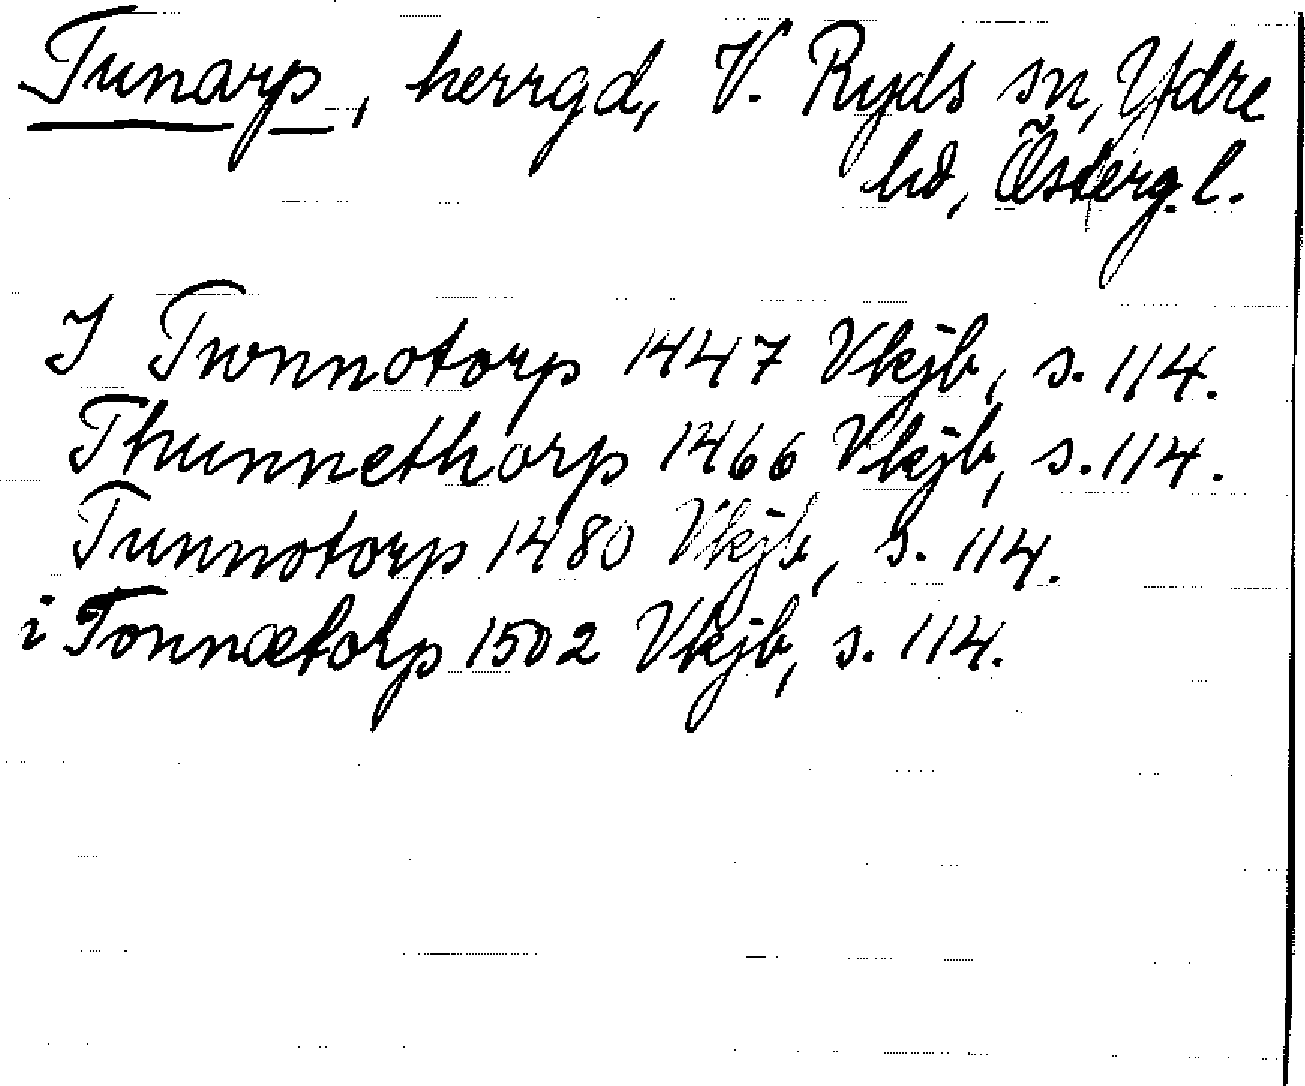 Tunarp, herrgd, V. Ryds sn, Ydre
hd, Österg. l.
I Twnnotorp 1447 Vkjb, s. 114.
Thunnethorp 1466 Vkjb, s. 114.
Tunnotorp 1480 Vkjb, s. 114.
i Tonnætorp 1502 Vkjb, s. 114.